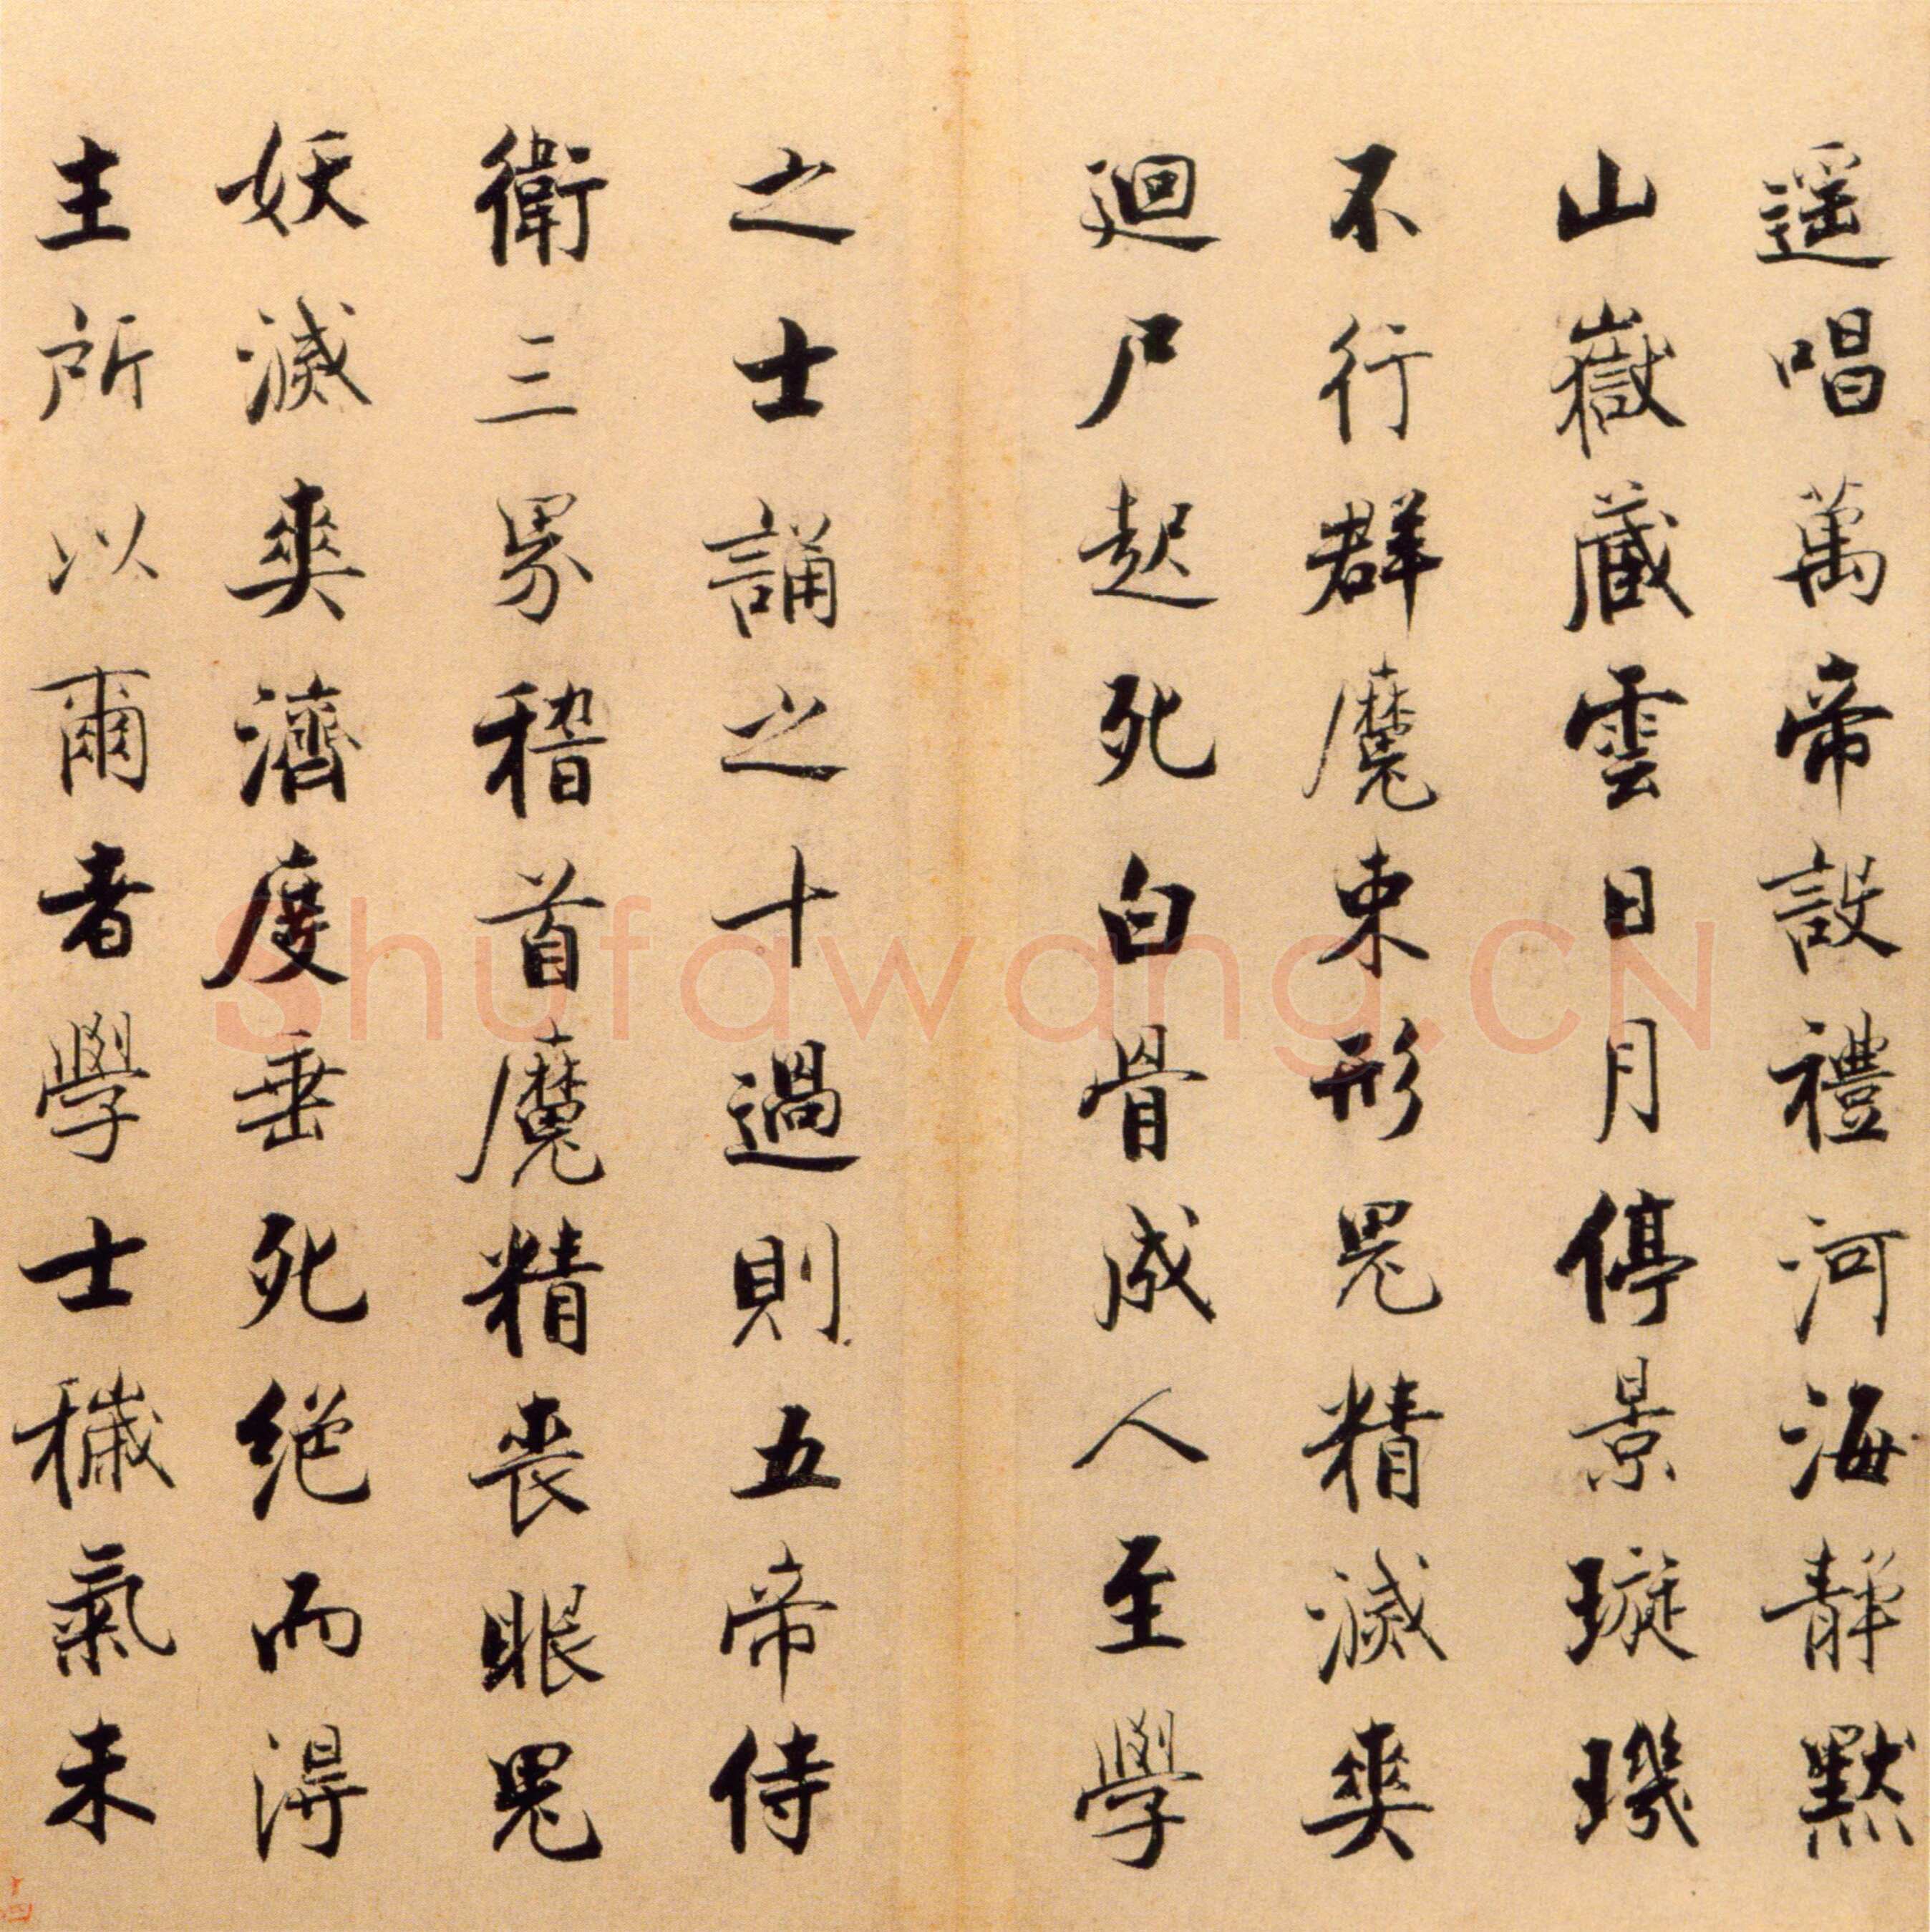 遥唱萬帝設禮河海靜默
山嶽藏雲日月停景璇璣
不行群魔束形鬼精滅爽
迴尸起死白骨成人至學
之士誦之十過則五帝侍
衛三界稽首魔精喪眼鬼
妖滅爽濟度垂死絕而得
主所以爾者學士穢氣未
Shufawang.CN